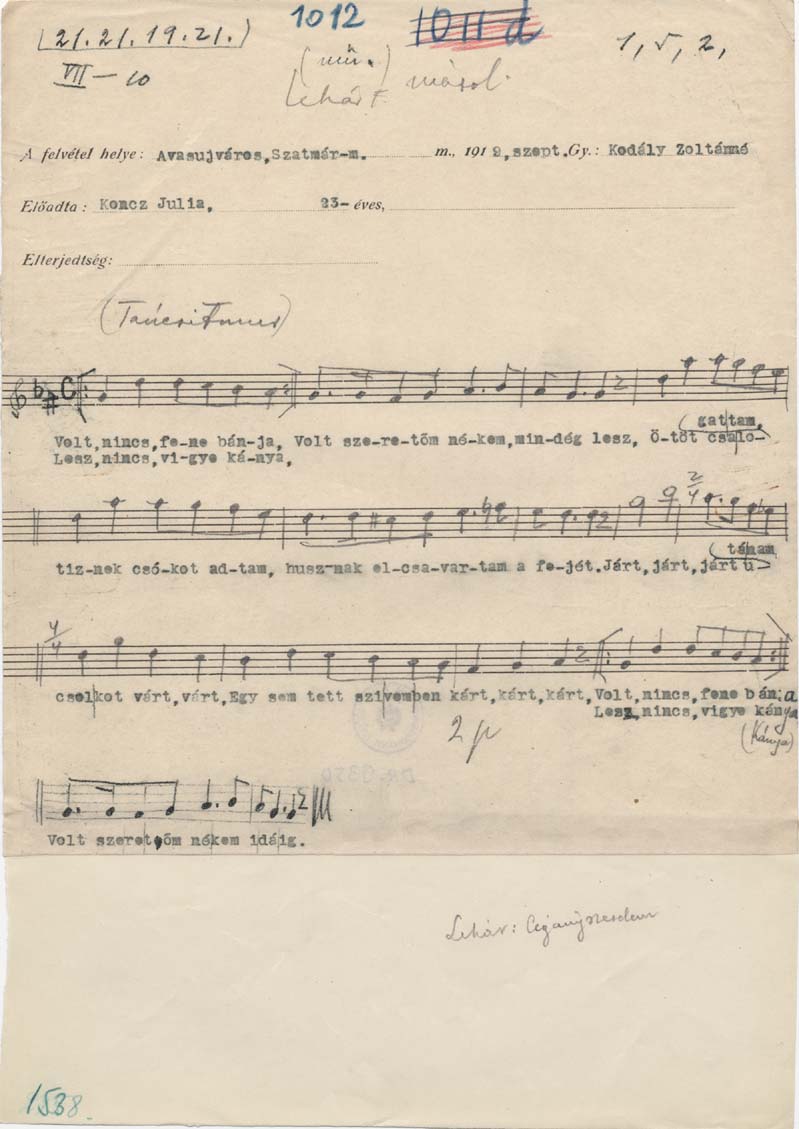 (21. 21. 19. 21.) 1012 1011 d 1, 5, 2,
VII-10 (mű.) másol.
Lehár F.
A felvétel helye: Avasujváros,Szatmár-m. m., 1912,szept. Gy.: Kodály Zoltánné
Előadta: Koncz Julia, 23-éves,
Elterjedtség:
(Táncritmus)
gattam,
Volt,nincs,fe-ne bán-ja, Volt sze-re-tőm né-kem,min-dég lesz, Ö-töt csalo-
Lesz,nincs,vi-gye ká-nya,
2/4
tánam
tiz-nek csó-kot ad-tam, husz-nak el-csa-var-tam a fe-jét.Járt,járt,járt u-
4/4
csolkot várt,várt,Egy sem tett szivemben kárt,kárt,kárt,Volt,nincs,fene bánja
Lesz,nincs,vigye kánya
(Kánya)
2 p
Volt szeretőm nékem idáig.
Lehár:
1538.